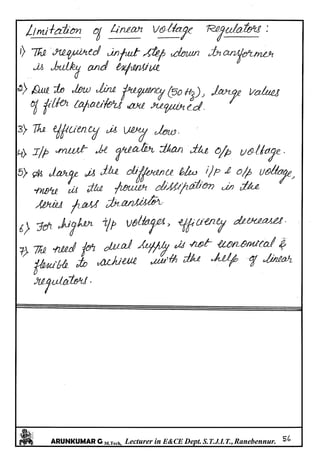 Limitation of Linear Voltage Regulators :
1) The required input step down transformer
is bulky and expensive
2) Due to low line frequency (50 Hz), large values
of filter capacitors are required.
3) The efficiency is very low.
4) I/p must be greater than the o/p voltage.
5) As large is the difference b/w i/p & o/p voltage,
more is the power dissipation in the
series pass transistor.
6) For higher i/p voltages, efficiency decreases.
7) The need for dual supply is not economical &
flexible to achieve with the help of linear
regulators.
ARUNKUMAR G M.Tech, Lecturer in E&CE Dept. S.T.J.I.T., Ranebennur. 56